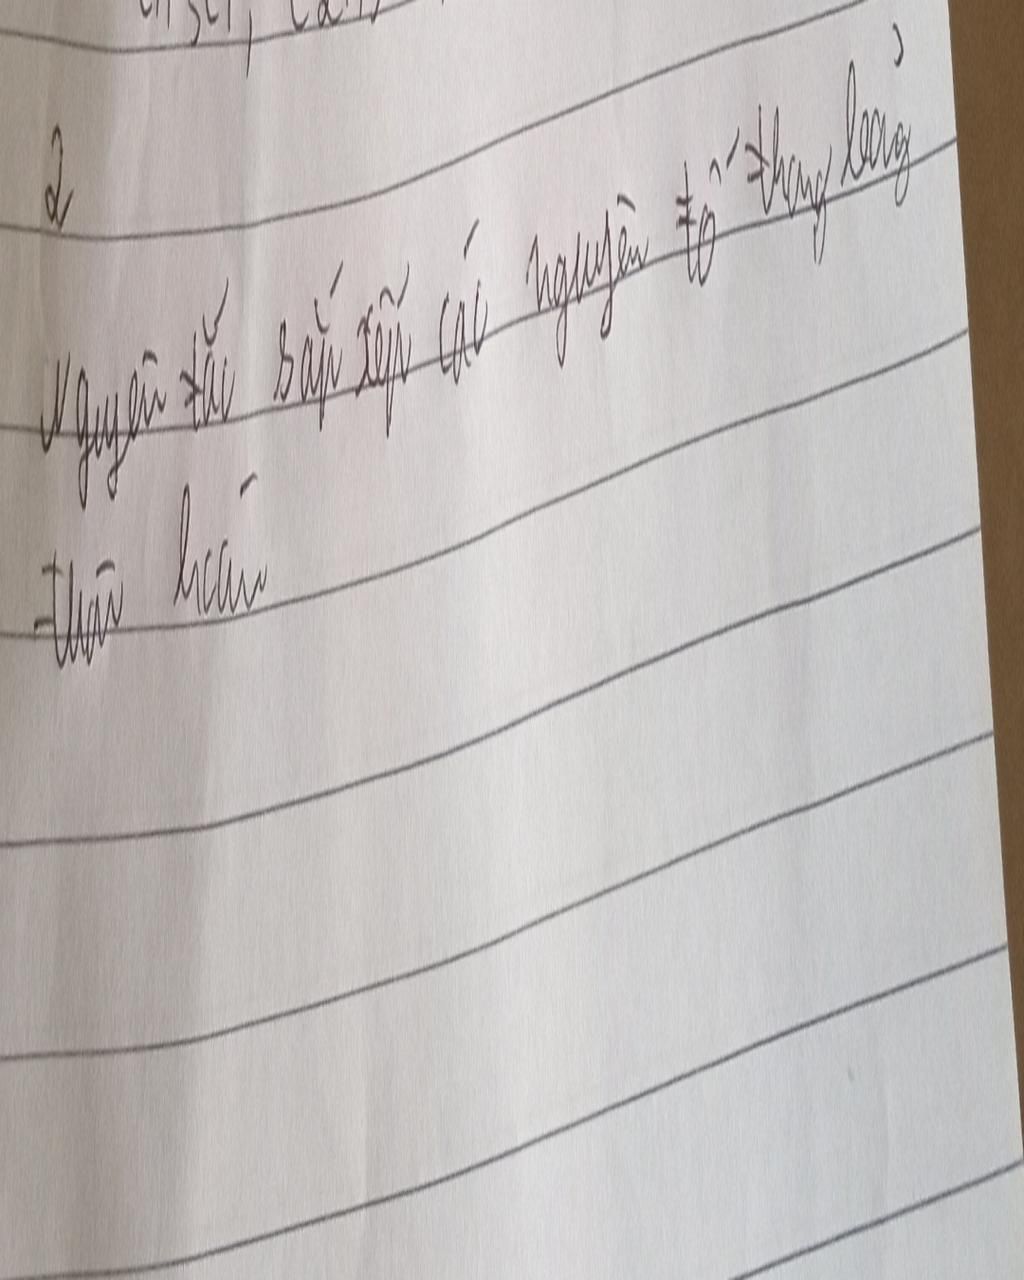 2
Nguyên tắc sắp xếp các nguyên tố trong bảng
tuần hoàn